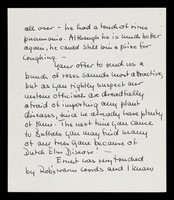 all over - he had a touch of virus
pneumonia. Although he is much better
again, he could still win a prize for
Coughing. -
Your offer to send us a
bunch of roses sounds most attractive,
but as you rightly suspect our
western officials are dreadfully
afraid of importing any plant
diseases, since we already have plenty
of them. The next time you come
to Buffalo you may find many
of our trees gone because of
Dutch Elm Disease. -
Ernst was very touched
by Rob's warm words and I know